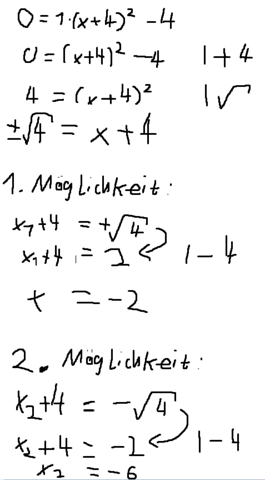 0 = 1·(x+4)² - 4
0 = (x+4)² - 4 | + 4
4 = (x+4)² | √
±√4 = x + 4
1. Möglichkeit:
x₁+4 = +√4
x₁+4 = 2 | - 4
x = -2
2. Möglichkeit:
x₂+4 = -√4
x₂+4 = -2 | - 4
x₂ = -6